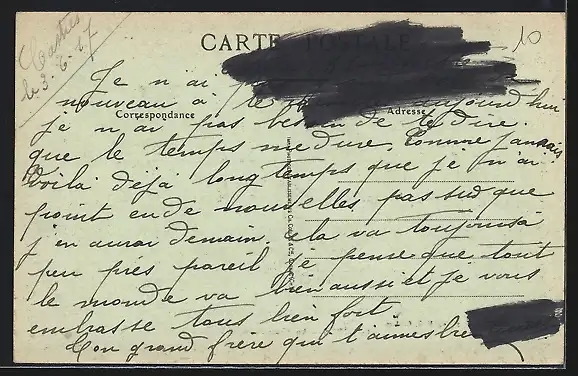 Castres
le 3. 6. 17
10
CARTE POSTALE
Correspondance
Adresse
Je n'ai
nouveau à te aujourd'hui
je n'ai pas besoin de te dire.
que le temps me dure, comme jamais
Voilà déjà longtemps que je n'ai
point eu de nouvelles. pas sur que
j'en aurai demain. cela va toujours à
peu prés pareil je pense que tout
le monde va bien aussi et je vous
embrasse tous bien fort
Ton grand frère qui t'aimes